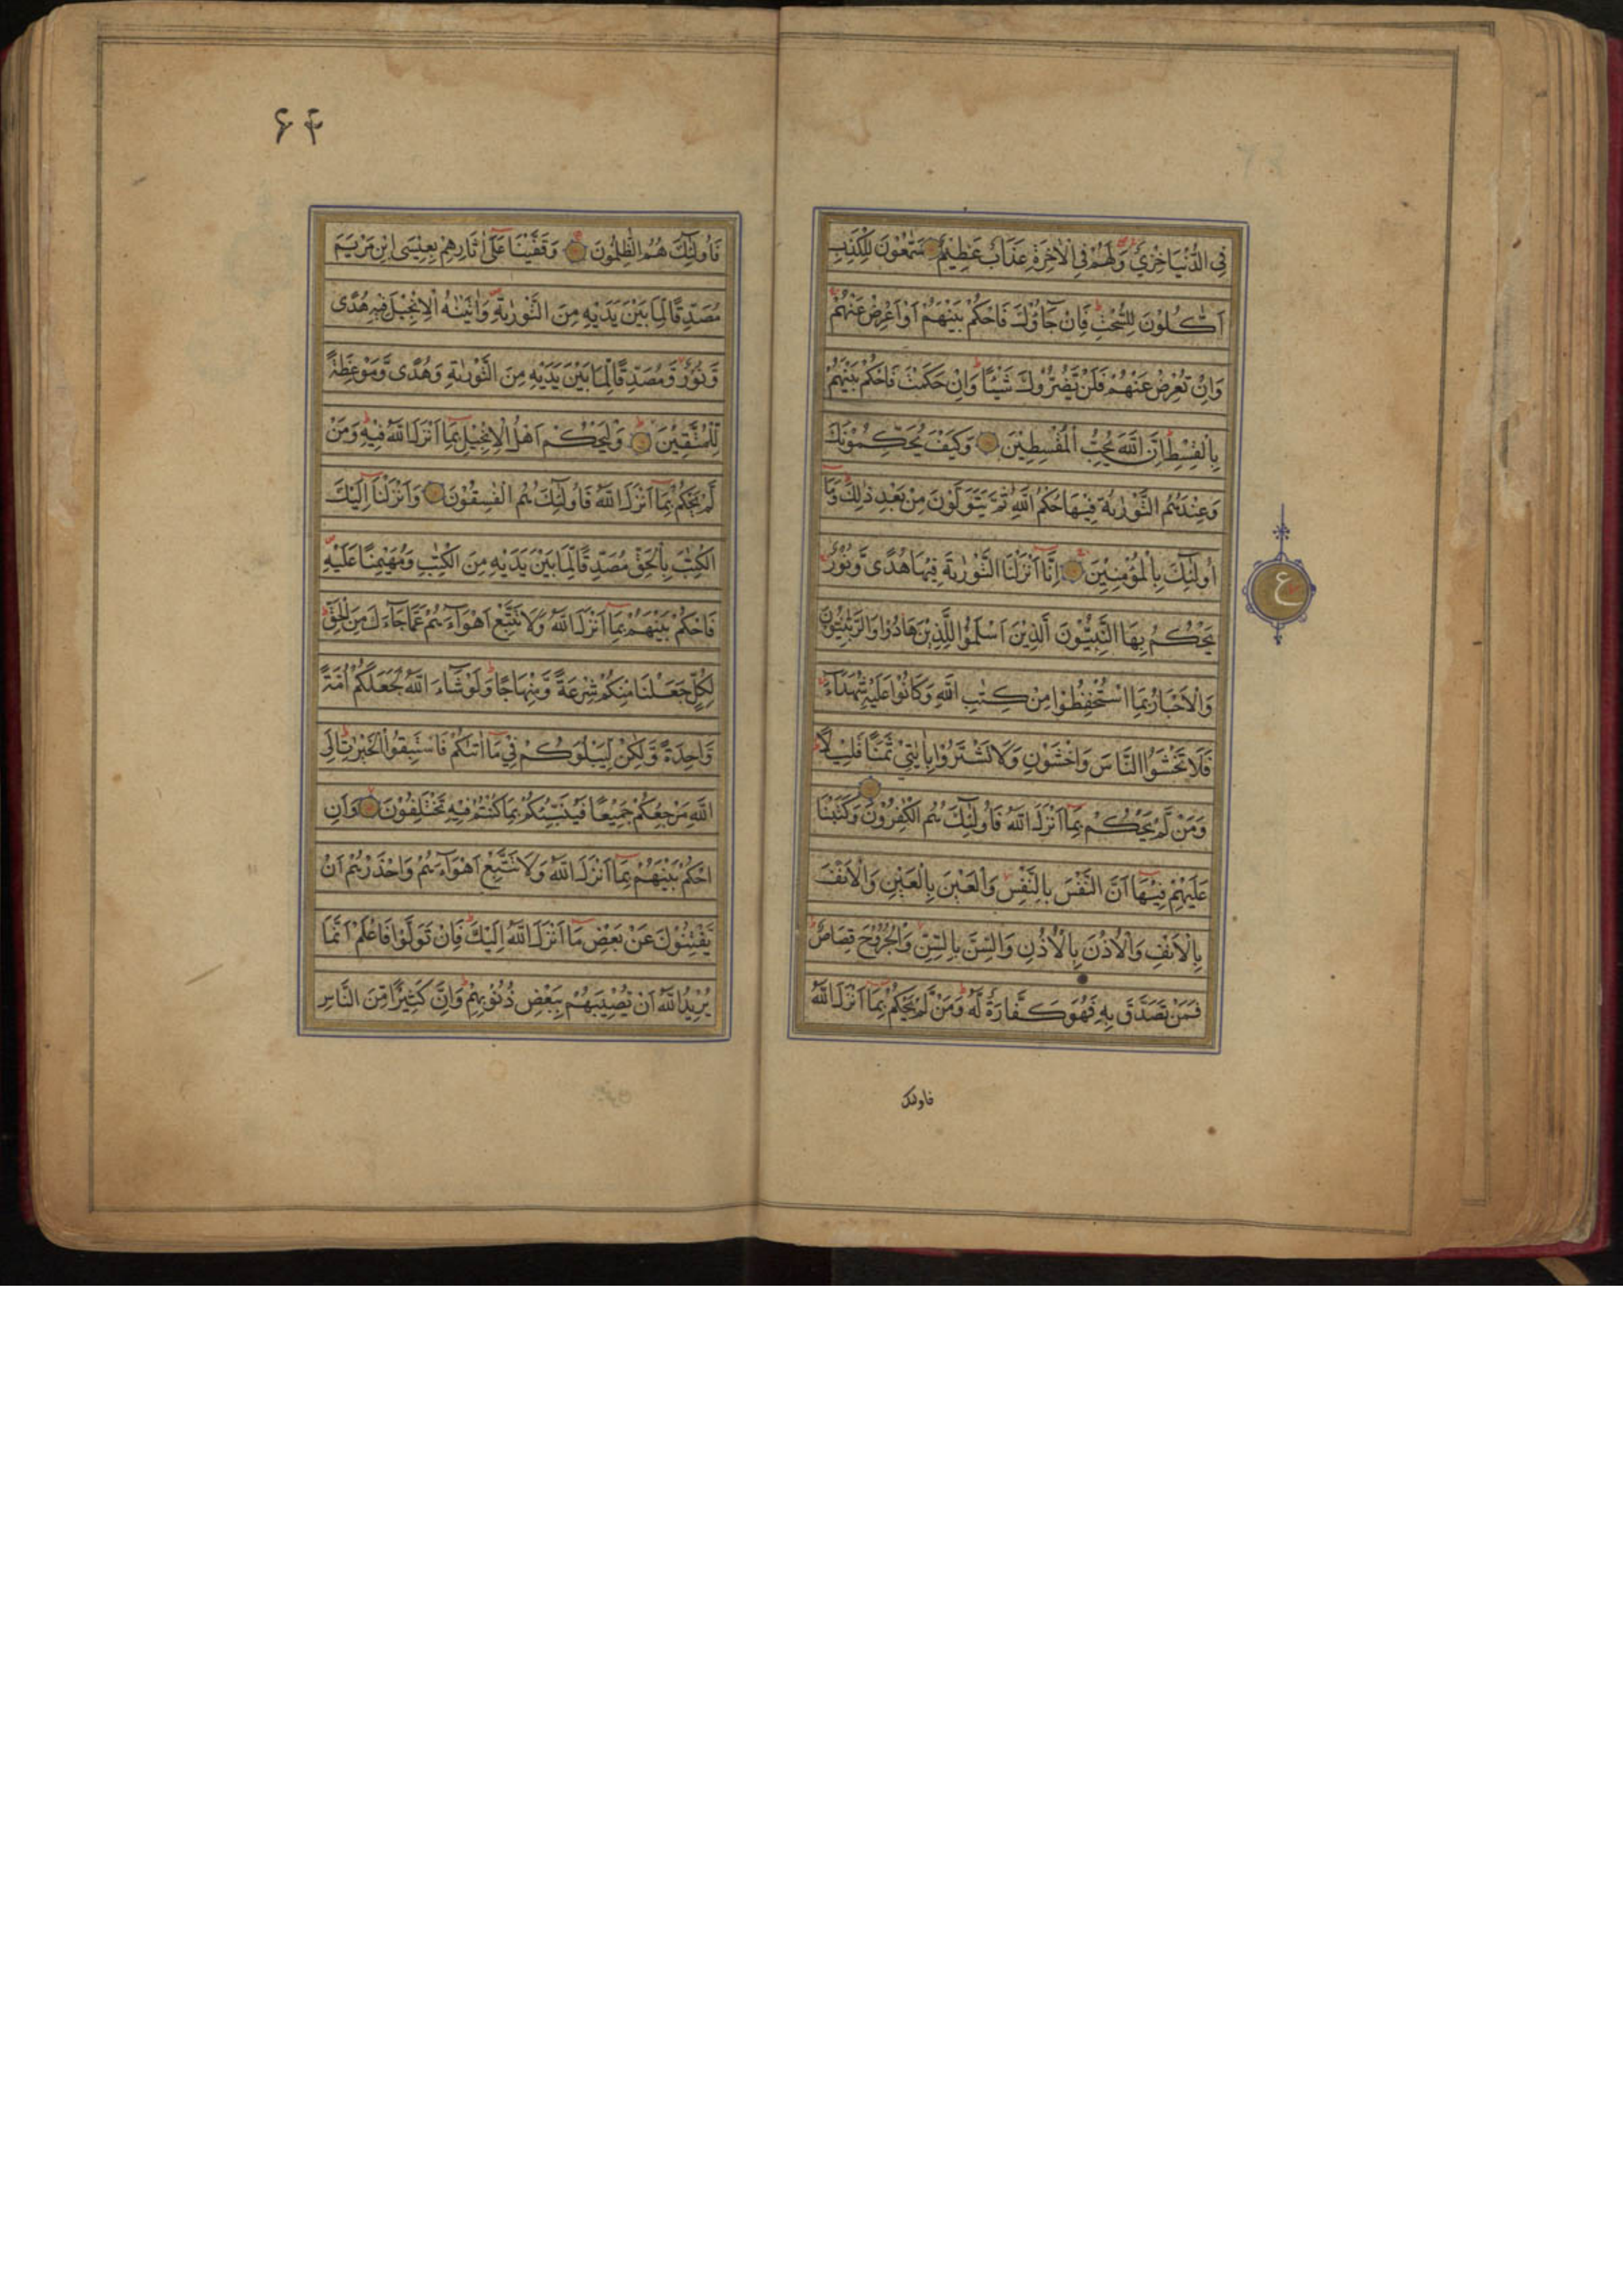 فِي الدُّنْيَا خِزْيٌ وَلَهُمْ فِي الْاٰخِرَةِ عَذَابٌ عَظِيْمٌ سَمّٰعُوْنَ لِلْكَذِبِ
اَكّٰلُوْنَ لِلسُّحْتِ فَاِنْ جَآؤُكَ فَاحْكُمْ بَيْنَهُمْ اَوْ اَعْرِضْ عَنْهُمْ
وَاِنْ تُعْرِضْ عَنْهُمْ فَلَنْ يَّضُرُّوْكَ شَيْـًٔا وَاِنْ حَكَمْتَ فَاحْكُمْ بَيْنَهُمْ
بِالْقِسْطِ اِنَّ اللّٰهَ يُحِبُّ الْمُقْسِطِيْنَ وَكَيْفَ يُحَكِّمُوْنَكَ
وَعِنْدَهُمُ التَّوْرٰىةُ فِيْهَا حُكْمُ اللّٰهِ ثُمَّ يَتَوَلَّوْنَ مِنْ بَعْدِ ذٰلِكَ وَمَا
اُولٰٓئِكَ بِالْمُؤْمِنِيْنَ اِنَّآ اَنْزَلْنَا التَّوْرٰىةَ فِيْهَا هُدًى وَّنُوْرٌ
يَحْكُمُ بِهَا النَّبِيُّوْنَ الَّذِيْنَ اَسْلَمُوْا لِلَّذِيْنَ هَادُوْا وَالرَّبّٰنِيُّوْنَ
وَالْاَحْبَارُ بِمَا اسْتُحْفِظُوْا مِنْ كِتٰبِ اللّٰهِ وَكَانُوْا عَلَيْهِ شُهَدَآءَ
فَلَا تَخْشَوُا النَّاسَ وَاخْشَوْنِ وَلَا تَشْتَرُوْا بِاٰيٰتِيْ ثَمَنًا قَلِيْلًا
وَمَنْ لَّمْ يَحْكُمْ بِمَآ اَنْزَلَ اللّٰهُ فَاُولٰٓئِكَ هُمُ الْكٰفِرُوْنَ وَكَتَبْنَا
عَلَيْهِمْ فِيْهَآ اَنَّ النَّفْسَ بِالنَّفْسِ وَالْعَيْنَ بِالْعَيْنِ وَالْاَنْفَ
بِالْاَنْفِ وَالْاُذُنَ بِالْاُذُنِ وَالسِّنَّ بِالسِّنِّ وَالْجُرُوْحَ قِصَاصٌ
فَمَنْ تَصَدَّقَ بِهٖ فَهُوَ كَفَّارَةٌ لَّهٗ وَمَنْ لَّمْ يَحْكُمْ بِمَآ اَنْزَلَ اللّٰهُ
فاولئك
ع
۶۴
فَاُولٰٓئِكَ هُمُ الظّٰلِمُوْنَ وَقَفَّيْنَا عَلٰٓى اٰثَارِهِمْ بِعِيْسَى ابْنِ مَرْيَمَ
مُصَدِّقًا لِّمَا بَيْنَ يَدَيْهِ مِنَ التَّوْرٰىةِ وَاٰتَيْنٰهُ الْاِنْجِيْلَ فِيْهِ هُدًى
وَّنُوْرٌ وَّمُصَدِّقًا لِّمَا بَيْنَ يَدَيْهِ مِنَ التَّوْرٰىةِ وَهُدًى وَّمَوْعِظَةً
لِّلْمُتَّقِيْنَ وَلْيَحْكُمْ اَهْلُ الْاِنْجِيْلِ بِمَآ اَنْزَلَ اللّٰهُ فِيْهِ وَمَنْ
لَّمْ يَحْكُمْ بِمَآ اَنْزَلَ اللّٰهُ فَاُولٰٓئِكَ هُمُ الْفٰسِقُوْنَ وَاَنْزَلْنَآ اِلَيْكَ
الْكِتٰبَ بِالْحَقِّ مُصَدِّقًا لِّمَا بَيْنَ يَدَيْهِ مِنَ الْكِتٰبِ وَمُهَيْمِنًا عَلَيْهِ
فَاحْكُمْ بَيْنَهُمْ بِمَآ اَنْزَلَ اللّٰهُ وَلَا تَتَّبِعْ اَهْوَآءَهُمْ عَمَّا جَآءَكَ مِنَ الْحَقِّ
لِكُلٍّ جَعَلْنَا مِنْكُمْ شِرْعَةً وَّمِنْهَاجًا وَلَوْ شَآءَ اللّٰهُ لَجَعَلَكُمْ اُمَّةً
وَّاحِدَةً وَّلٰكِنْ لِّيَبْلُوَكُمْ فِيْ مَآ اٰتٰىكُمْ فَاسْتَبِقُوا الْخَيْرٰتِ اِلَى
اللّٰهِ مَرْجِعُكُمْ جَمِيْعًا فَيُنَبِّئُكُمْ بِمَا كُنْتُمْ فِيْهِ تَخْتَلِفُوْنَ وَاَنِ
احْكُمْ بَيْنَهُمْ بِمَآ اَنْزَلَ اللّٰهُ وَلَا تَتَّبِعْ اَهْوَآءَهُمْ وَاحْذَرْهُمْ اَنْ
يَّفْتِنُوْكَ عَنْ بَعْضِ مَآ اَنْزَلَ اللّٰهُ اِلَيْكَ فَاِنْ تَوَلَّوْا فَاعْلَمْ اَنَّمَا
يُرِيْدُ اللّٰهُ اَنْ يُّصِيْبَهُمْ بِبَعْضِ ذُنُوْبِهِمْ وَاِنَّ كَثِيْرًا مِّنَ النَّاسِ